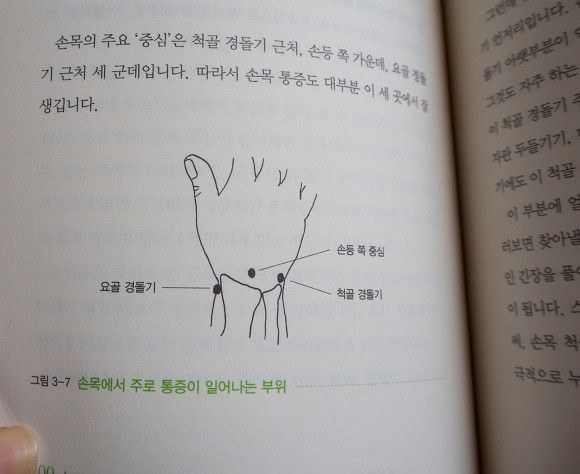 손목의 주요 '중심'은 척골 경돌기 근처, 손등 쪽 가운데, 요골 경돌
기 근처 세 군데입니다. 따라서 손목 통증도 대부분 이 세 곳에서 잘
생깁니다.
손등 쪽 중심
요골 경돌기
척골 경돌기
그림 3-7 손목에서 주로 통증이 일어나는 부위
그런데
기 언저리입니다.
돌기 아랫부분이
그것도 자주 하는
이 척골 경돌기
자판 두들기기,
기에도 이 척골
이 부분에
러보면 찾아낼
인 긴장을
이 됩니다.
써, 손목
극적으로